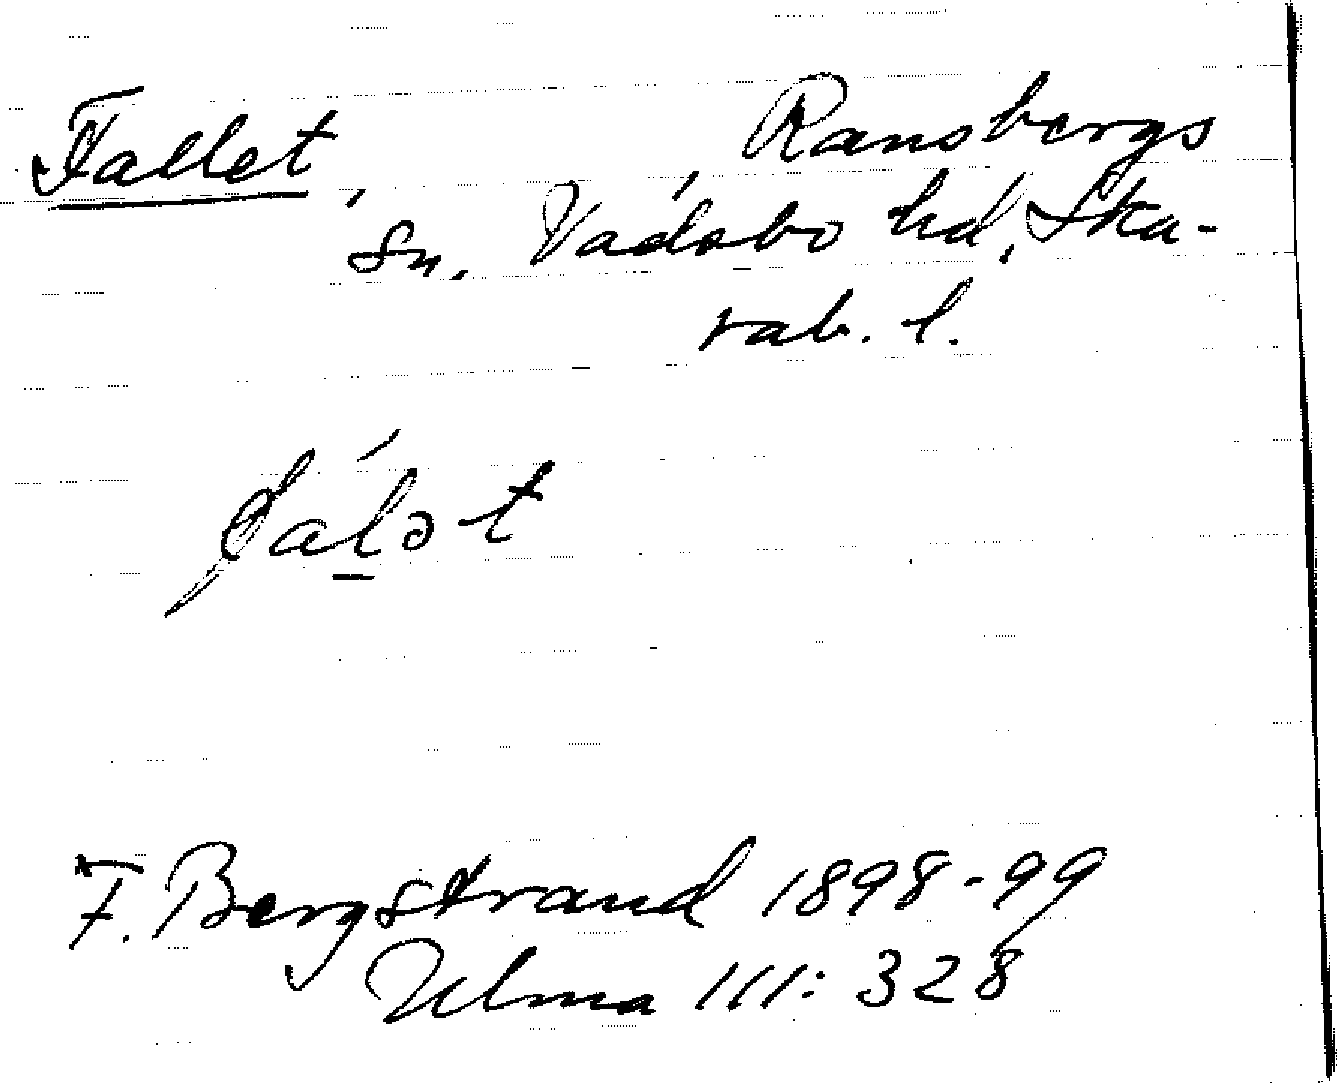 Fallet, Ransbergs
sn. Vadsbo hd, Ska-
rab. l.
fálət
F. Bergstrand 1898-99
Ulma 111: 328